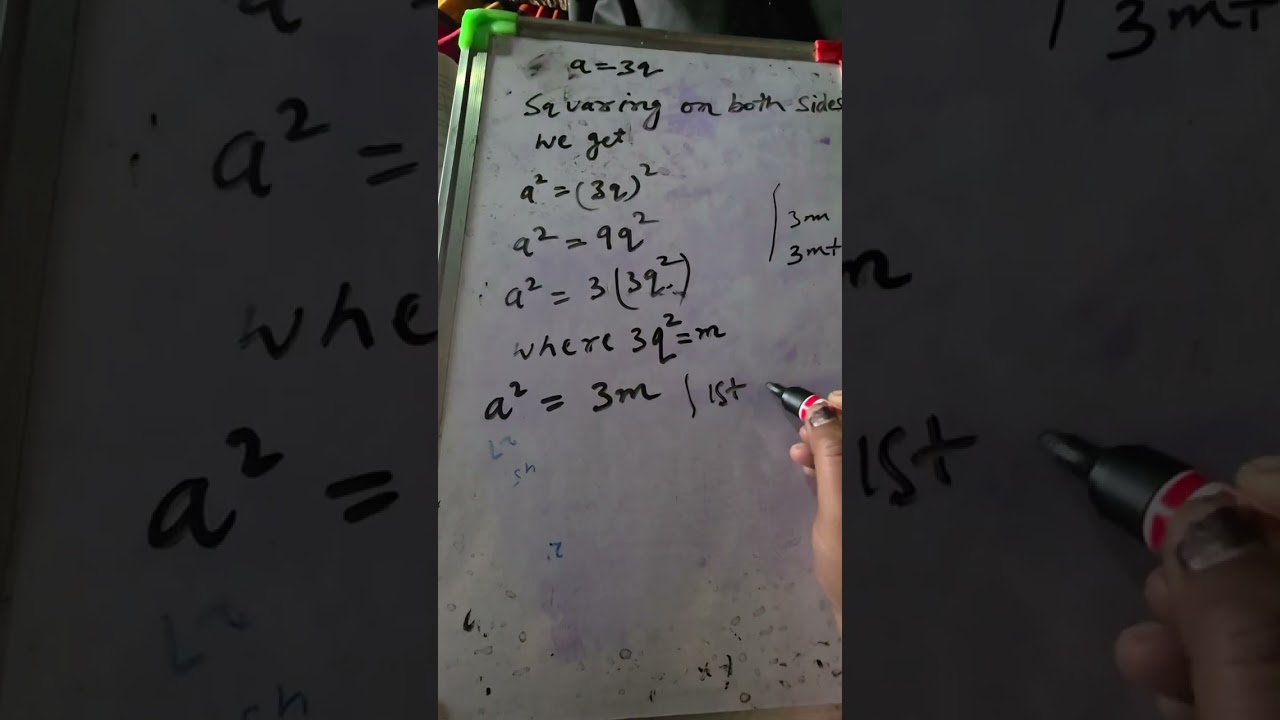 a = 3q
Squaring on both sides
we get
a² = (3q)²
a² = 9q²
∴ a² = 3(3q²)
where 3q² = m
a² = 3m | 1st
3m
3m+